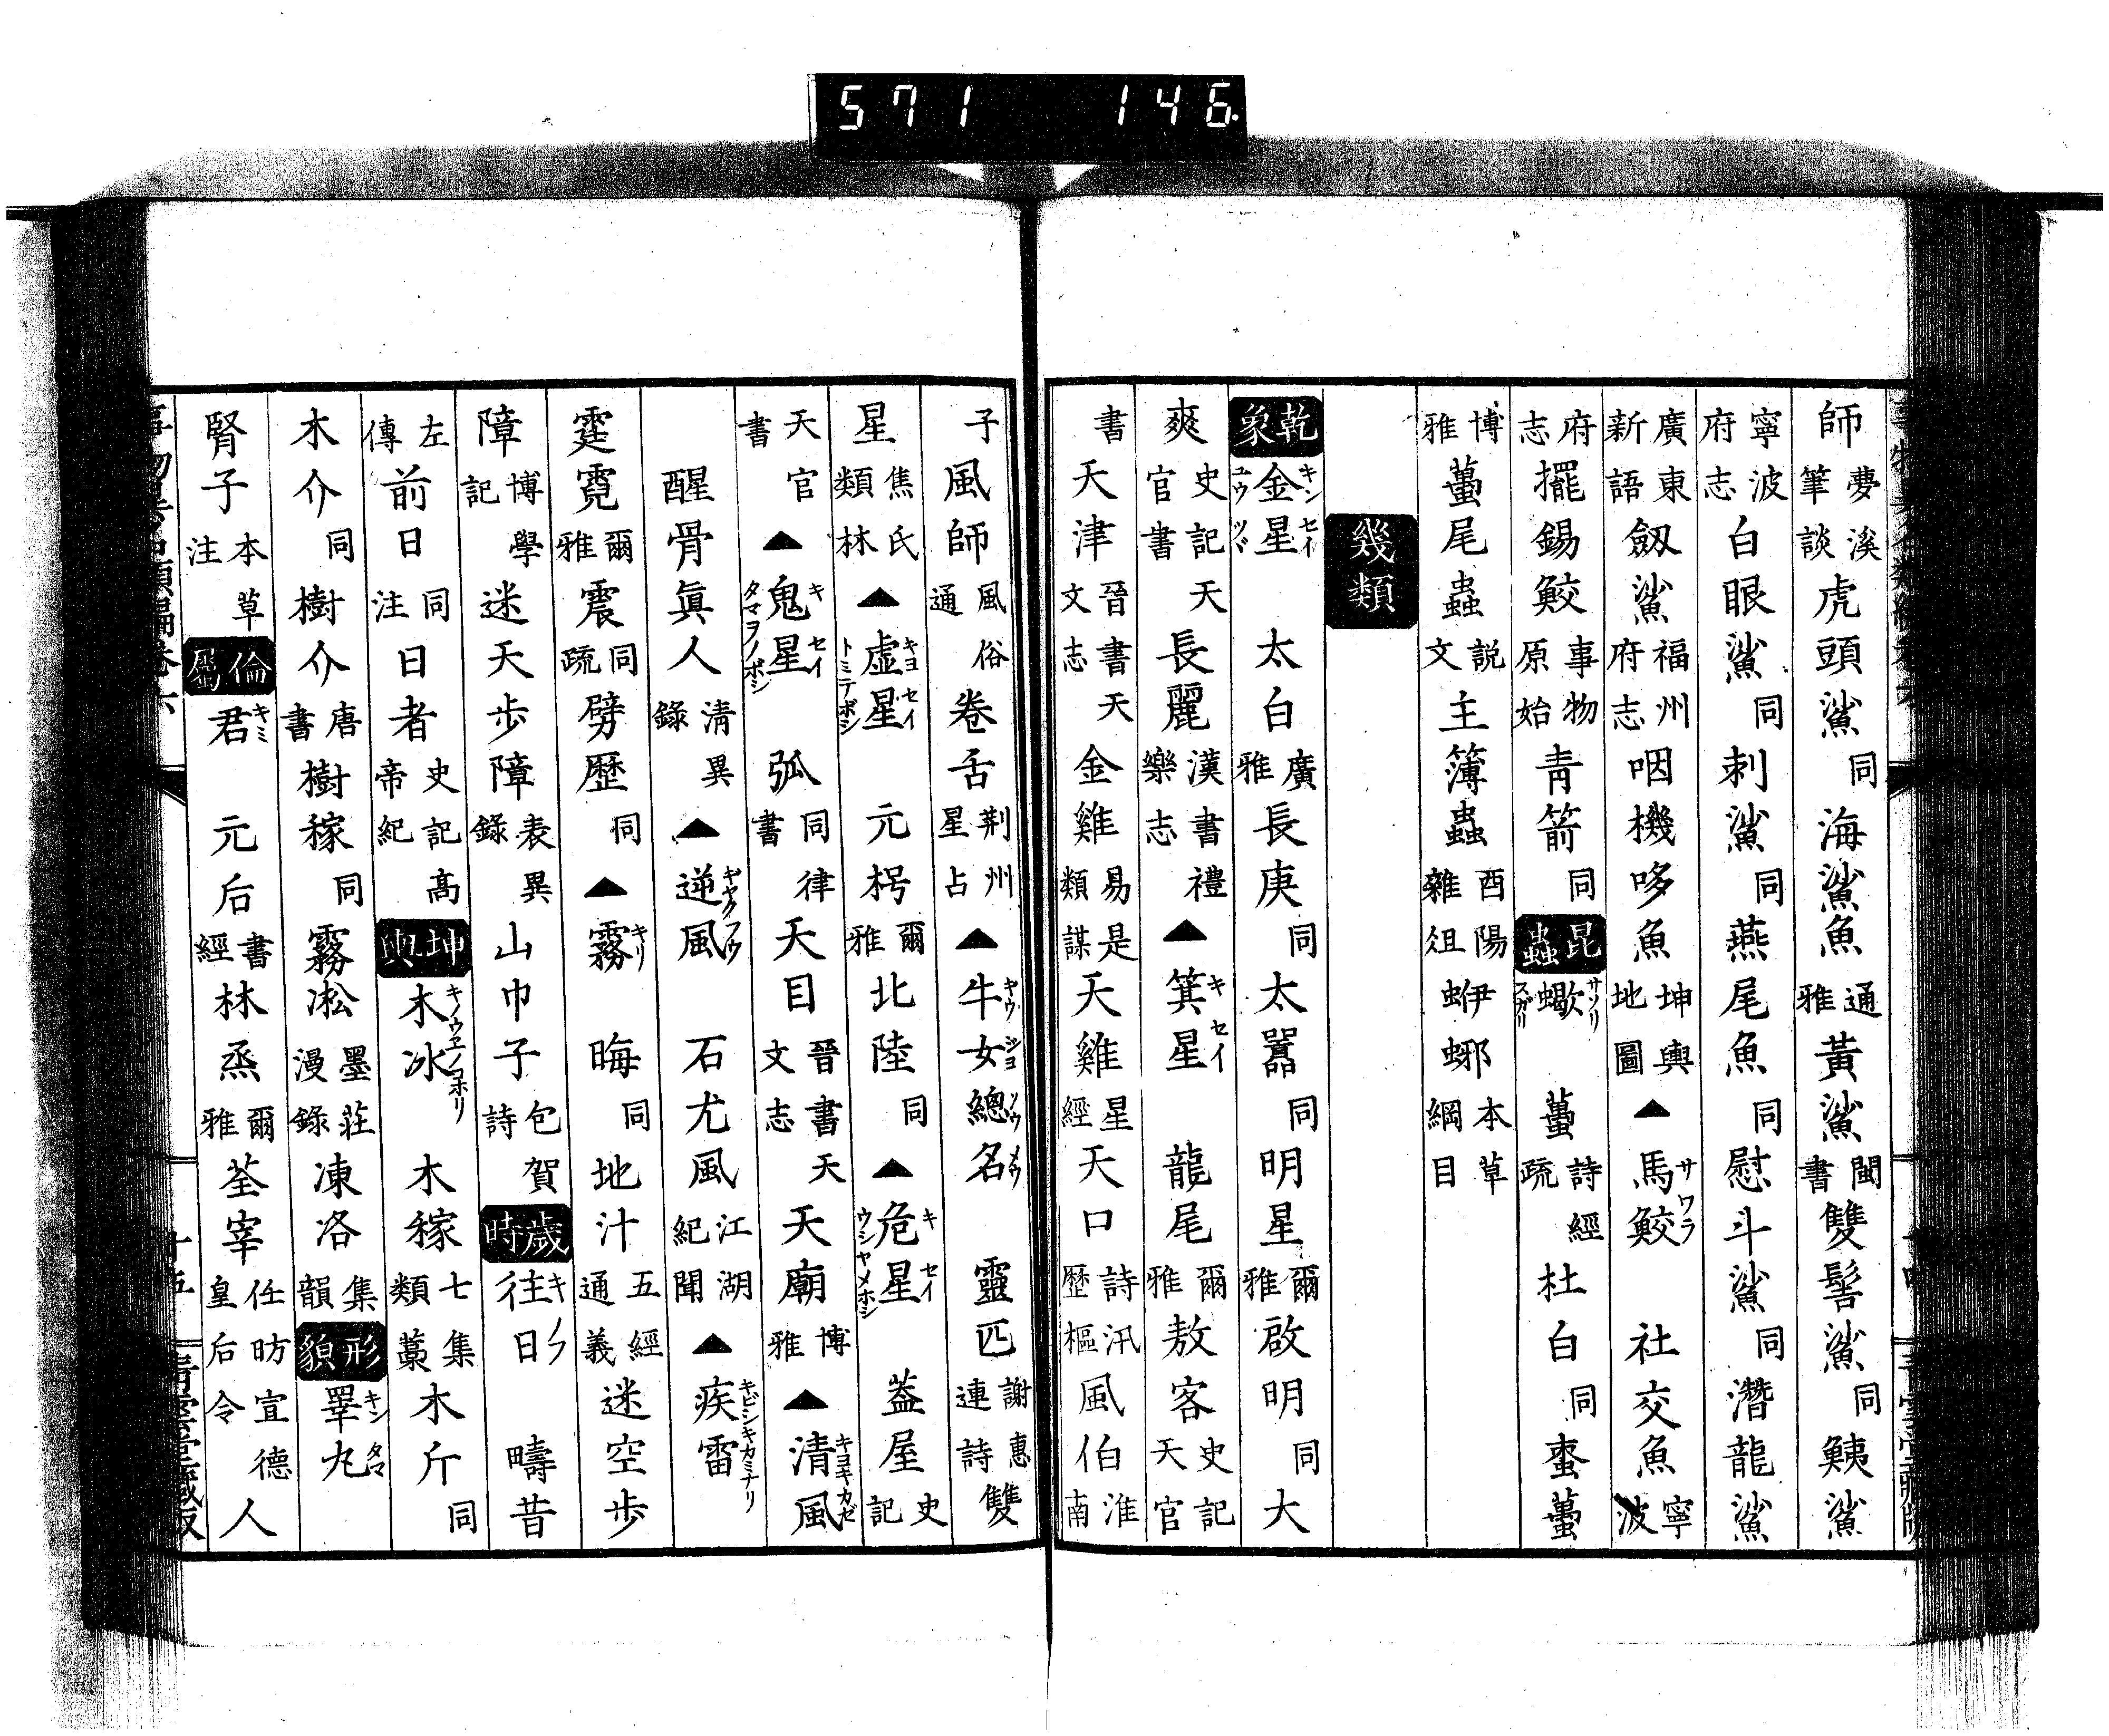 571 146
師夢溪筆談虎頭鯊同海鯊魚通雅黃鯊閩書雙髻鯊同鮧鯊
寧波府志白眼鯊同刺鯊同燕尾魚同慰斗鯊同潛龍鯊
廣東新語劔鯊福州府志咽機哆魚坤輿地圖▲馬鮫サワラ社交魚寧波
府志擺錫鮫事物原始青箭同昆蟲蠍サソリスガリ蠆詩經疏杜白同蠆
博雅蠆尾蟲説文主簿蟲酉陽雜俎蛜𧌴本草綱目
幾類
乾象金星キンセイユウツヾ太白廣雅長庚同太嚣同明星爾雅啟明同大
爽史記天官書長麗漢書禮樂志▲箕星キセイ龍尾爾雅敖客史記天官
書天津晉書天文志金雞易是類謀天雞星經天口詩汎歷樞風伯淮南
子風師風俗通卷舌荆州星占▲牛女總名ギウジヨソウメウ靈匹謝惠連詩雙
星焦氏類林▲虛星キヨセイトミテボシ元枵爾雅北陸同▲危星キセイウシヤメホシ葢屋史記
天官書▲鬼星キセイタマヲノボシ弧同律書天目晉書天文志天廟博雅▲清風キヨキカゼ
醒骨眞人清異錄▲逆風ギヤクフウ石尤風江湖紀聞▲疾雷キビシキカミナリ
霆霓爾雅震同疏劈歷同▲霧キリ晦同地汁五經通義迷空步
障博學記迷天步障表異錄山巾子包賀詩歲時徃日キノフ疇昔
左傳前日同注日者史記高帝紀坤輿木冰キノウヱノコホリ木稼七集類藁木斤同
木介同樹介唐書樹稼同霧凇墨莊漫錄凍洛集韻形貌睪丸キンタマ
腎子本草注倫屬君キミ元后書經林烝爾雅荃宰任昉宣德皇后令人